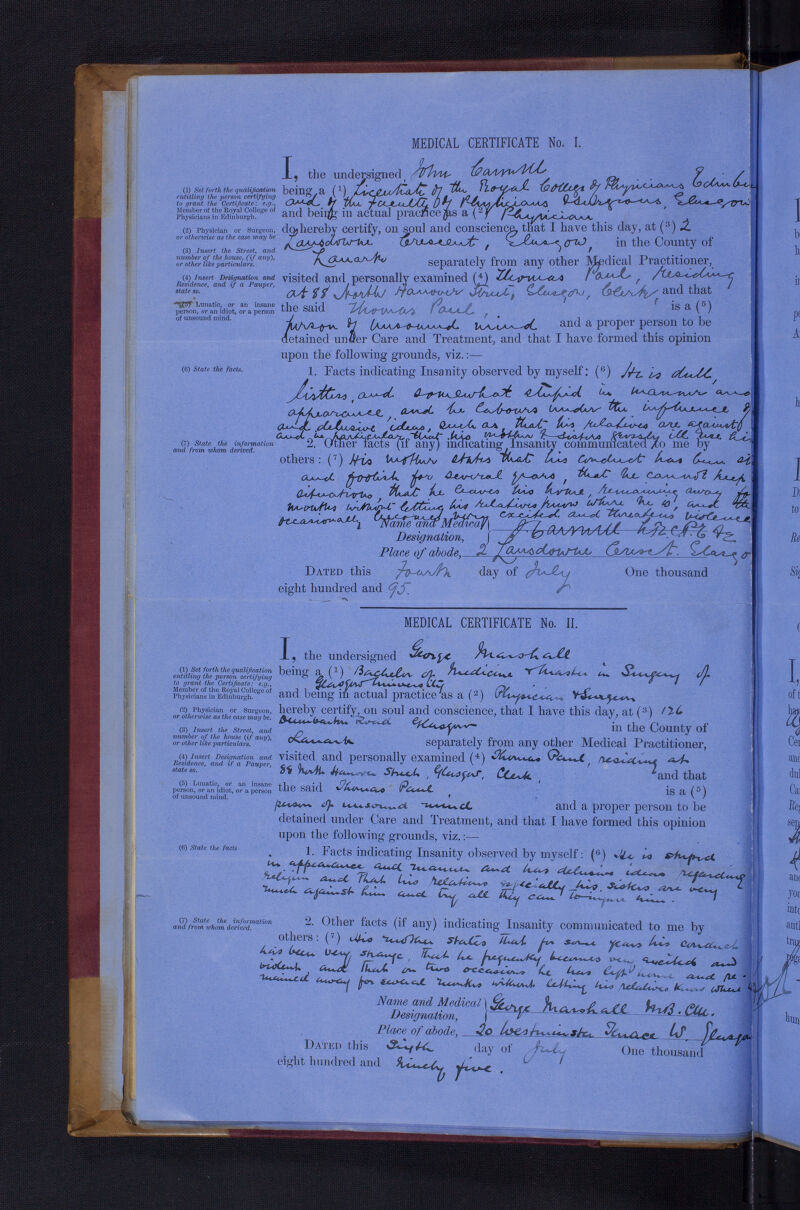 MEDICAL CERTIFICATE No. I.
I, the undersigned, John Carswell
being a (1) Licentiate of the Royal College of Physicians Edinburgh
and of the Faculty of Physicians & Surgeons, Glasgow
and being in actual practice as a (2) Physician
do hereby certify, on soul and conscience, that I have this day, at (3) 2
Lansdowne Crescent, Glasgow, in the County of
Lanark separately from any other Medical Practitioner,
visited and personally examined (4) Thomas Paul, residing
at 88 North Hanover Street, Glasgow, Clerk, and that
the said Thomas Paul, is a (5)
person of unsound mind and a proper person to be
detained under Care and Treatment, and that I have formed this opinion
upon the following grounds, viz.:—
1. Facts indicating Insanity observed by myself: (6) He is dull,
listless, and somewhat stupid in manner and
appearance, and he labours under the influence of
and delusive ideas, such as, that his relatives are against
and in particular that his mother & sisters grossly ill use him
2. Other facts (if any) indicating Insanity communicated to me by
others: (7) His mother states that his conduct has been
and foolish for several years, that he cannot keep
situations, that he leaves his home, remaining away for
months without letting his relatives know where he is, and
occasionally becomes very excited and threatens violence
Name and Medical
Designation, J Carswell LRCPE &c
Place of abode, 2 Lansdowne Cresct. Glasgo
DATED this fourth day of July One thousand
eight hundred and 95.
(1) Set forth the qualification
entitling the person certifying
to grant the Certificate: e.g.,
Member of the Royal College of
Physicians in Edinburgh.
(2) Physician or Surgeon,
or otherwise as the case may be
(3) Insert the Street, and
number of the house, (if any),
or other like particulars.
(4) Insert Designation and
Residence, and if a Pauper,
state so.
Lunatic, or an insane
person, or an idiot, or a person
of unsound mind.
(6) State the facts.
(7) State the information
and from whom derived.
MEDICAL CERTIFICATE No. II.
I, the undersigned George Marshall
being a (1) Bachelor of Medicine & Master in Surgery of
Glasgow University
and being in actual practice as a (2) Physician & Surgeon
hereby certify, on soul and conscience, that I have this day, at (3) 126
Dumbarton Road Glasgow in the County of
Lanark separately from any other Medical Practitioner,
visited and personally examined (4) Thomas Paul, residing at
88 North Hanover Street, Glasgow, Clerk, and that
the said Thomas Paul, is a (5)
person of unsound mind and a proper person to be
detained under Care and Treatment, and that I have formed this opinion
upon the following grounds, viz.:—
1. Facts indicating Insanity observed by myself: (6) He is stupid
in appearance and manner and has delusive ideas regarding
religion and that his relations especially his sisters are very
much against him and try all they can to injure him.
2. Other facts (if any) indicating Insanity communicated to me by
others: (7) His mother states that for some years his conduct
has been very strange, that he frequently becomes very excited and
violent and that on two occasions he has left home and re-
mained away for several months without letting his relatives know where
Name and Medical
Designation, George Marshall M.B. C.M.
Place of abode, 20 Westminster Terrace W. Glasgo
DATED this Sixth day of July One thousand
eight hundred and Ninety five.
(1) Set forth the qualification
entitling the person certifying
to grant the Certificate: e.g.,
Member of the Royal College of
Physicians in Edinburgh.
(2) Physician or Surgeon,
or otherwise as the case may be.
(3) Insert the Street, and
number of the house (if any),
or other like particulars.
(4) Insert Designation and
Residence, and if a Pauper,
state so.
(5) Lunatic, or an insane
person, or an idiot, or a person
of unsound mind.
(6) State the facts
(7) State the information
and from whom derived.